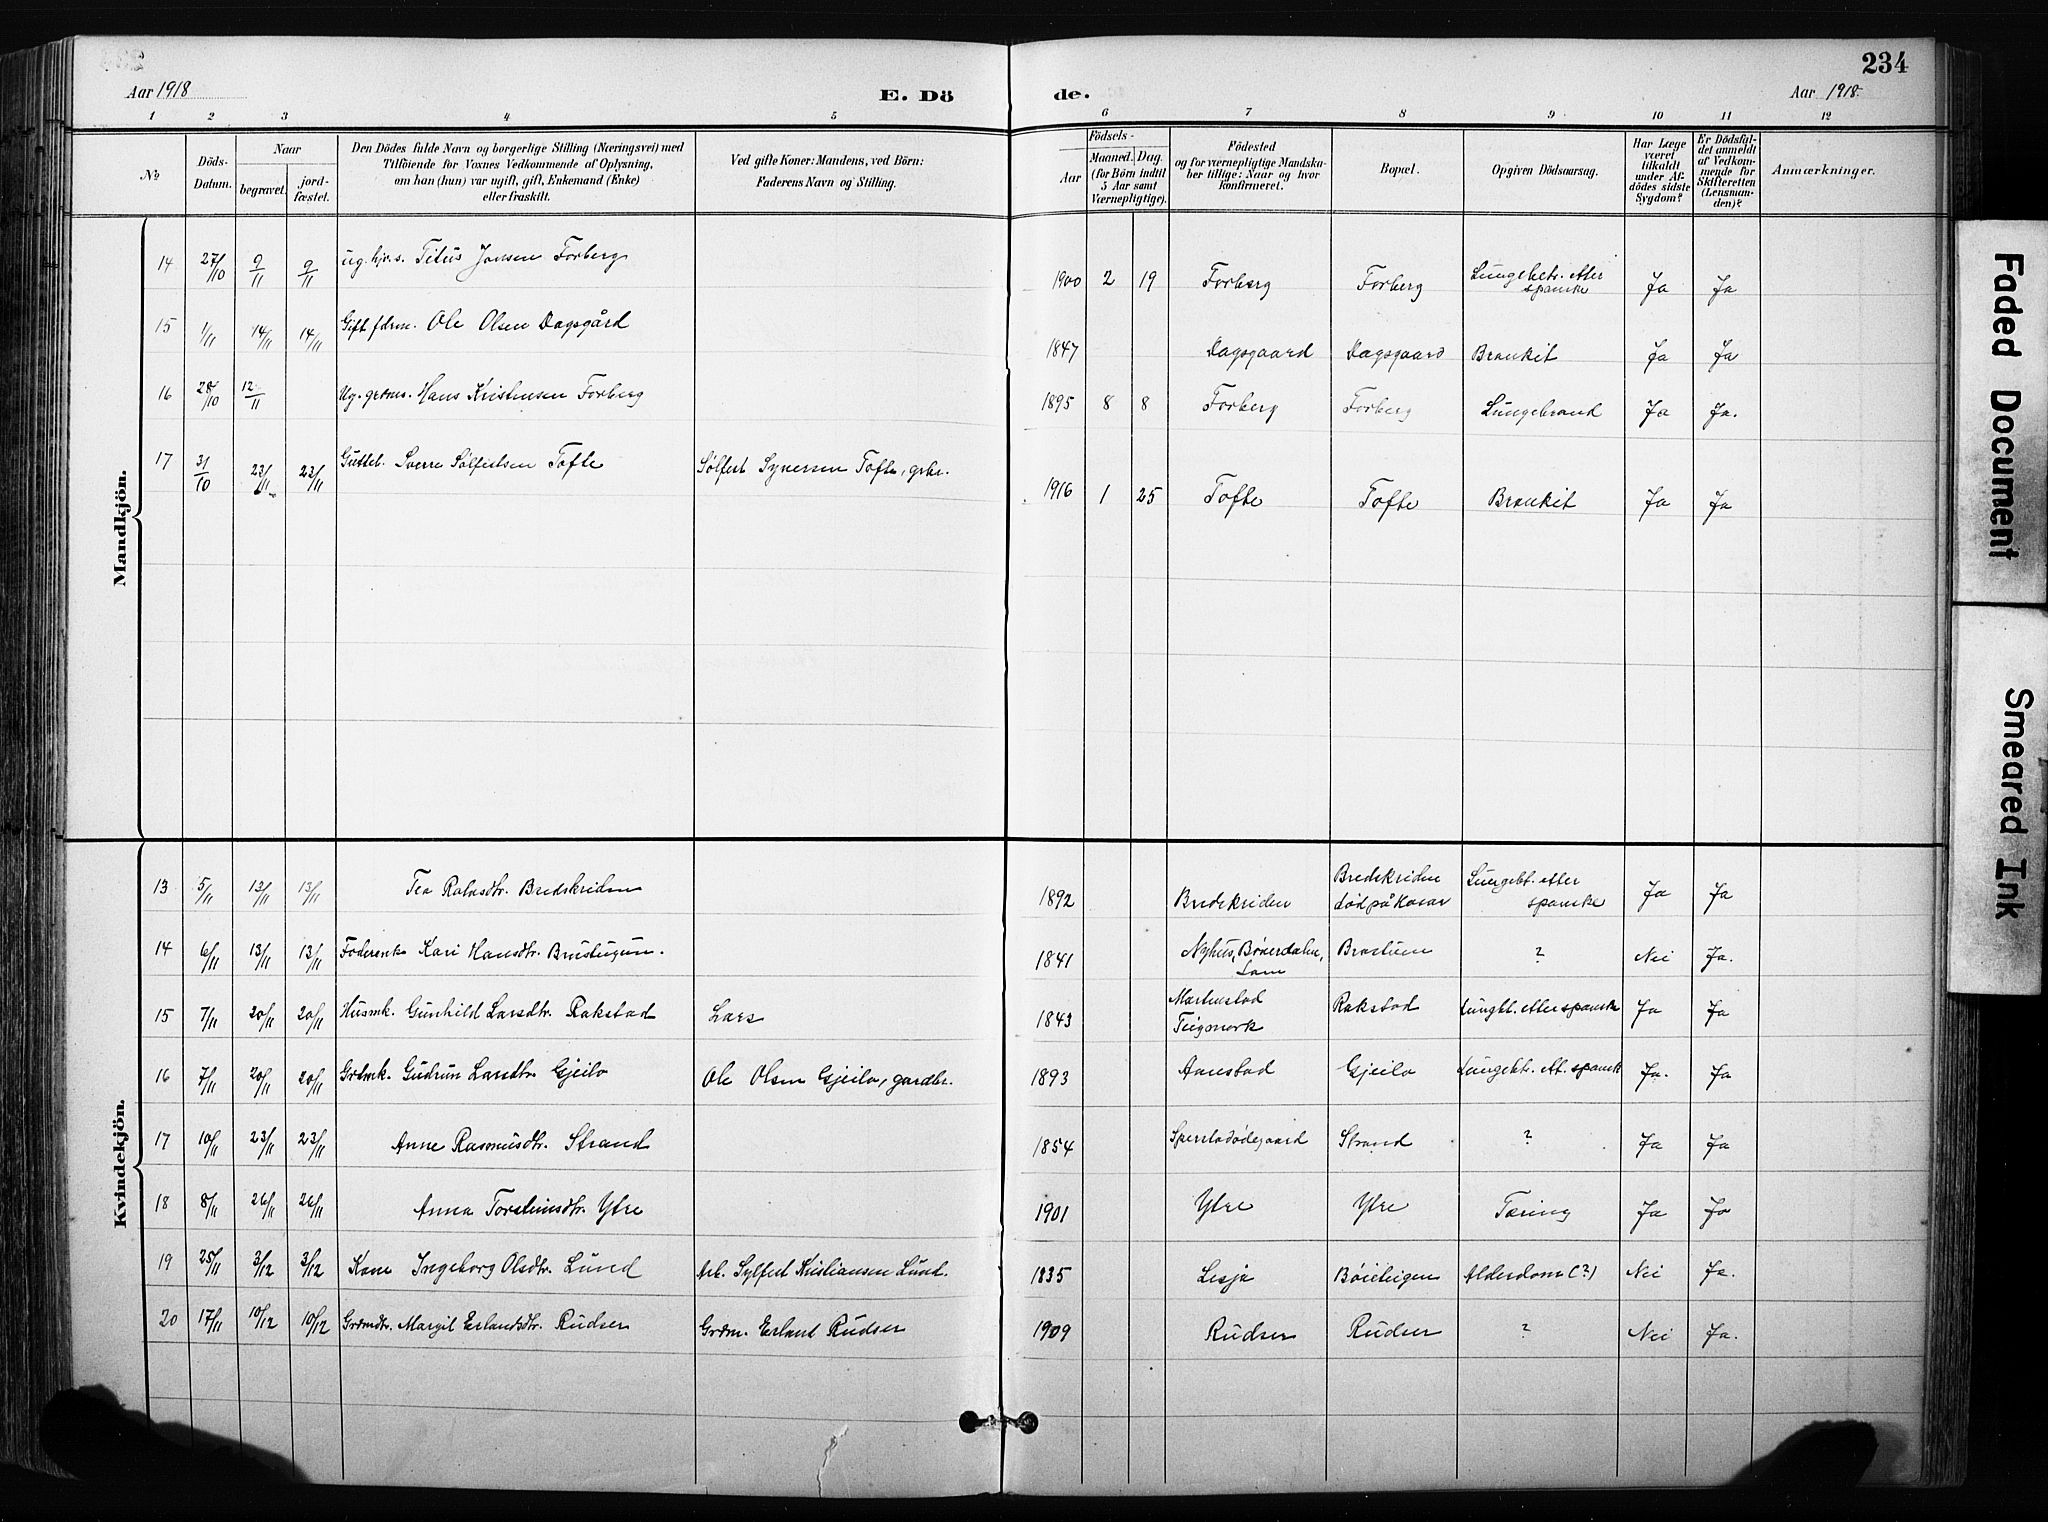 234
Aar 1918
E. Dö
de.
Aar 1918
1 2 3 4 5 6 7 8 9 10 11 12
No
Döds-Datum.
Naar
begravet.
jord-fæstet.
Den Dödes fulde Navn og borgerlige Stilling (Næringsvei) med
Tilföiende for Voxnes Vedkommende af Oplysning,
om han (hun) var ugift, gift, Enkemand (Enke)
eller fraskilt.
Ved gifte Koner: Mandens, ved Börn:
Faderens Navn og Stilling.
Födsels-
Aar
Maaned. Dag.
(for Börn indtil
5 Aar samt
Værnepligtige).
Födested
og for værnepligtige Mandska-
ber tillige: Naar og hvor
konfirmeret.
Bopæl.
Opgiven Dödsaarsag.
Har Læge
været
tilkaldt
under Af-
dödes sidste
Sygdom?
Er Dödsfal-
det anmeldt
af Vedkom-
mende for
Skifteretten
(Lensman-
den)?
Anmærkninger.
Mandkjön.
14 27/10 9/11 9/11 ug. hjv.s. Titus Jonsen Forberg 1900 2 19 Forberg Forberg Lungebetr. efter spanske Ja Ja
15 1/11 14/11 14/11 Gift fdrm. Ole Olsen Dagsgård 1847 Dagsgaard Dagsgaard Bronkit Ja Ja
16 28/10 12/11 Ug. grdms. Hans Kristensen Forberg 1895 8 8 Forberg Forberg Lungebrand Ja Ja.
17 31/10 23/11 23/11 Gutteb. Sverre Sølfestsen Tofte Sølfest Syversen Tofte, grbr. 1916 1 25 Tofte Tofte Bronkit Ja Ja
Kvindekjön.
13 5/11 13/11 13/11 Tea Bredskriden 1892 Bredskriden Bredskriden død på Ja Ja
spanske
14 6/11 13/11 13/11 Kari Hansdtr. Brustugun. 1841 Nyhus, Bøverdalen, Lom ? Nei Ja.
15 7/11 20/11 20/11 Husmk. Gunhild Larsdtr. Rakstad Lars 1843 Rakstad Lungbt. efter spanske Ja Ja
16 7/11 20/11 20/11 Grdmk. Gudrun Larsdtr. Gjeilo Ole Olsen Gjeilo, gardbr. 1893 Aanstad Gjeilo Lungebt. eft. spansk Ja. Ja
17 10/11 23/11 23/11 Anne Rasmusdtr. Strand 1854 Strand ? Ja Ja
18 8/11 26/11 26/11 Anna Torsteinsdtr. Ytre 1901 Ytre Ytre Tæring Ja Ja
19 25/11 3/12 3/12 Kone Ingeborg Olsdtr. Lund Arb. Sylfest Kristiansen Lund. 1835 Lesja Alderdom(?) Nei Ja.
20 17/11 10/12 10/12 Grdmdtr. Margit Erlandsdtr. Rudser Grdm. Erland Rudser 1909 Rudser Rudser ? Nei Ja.
Faded Document
Smeared Ink